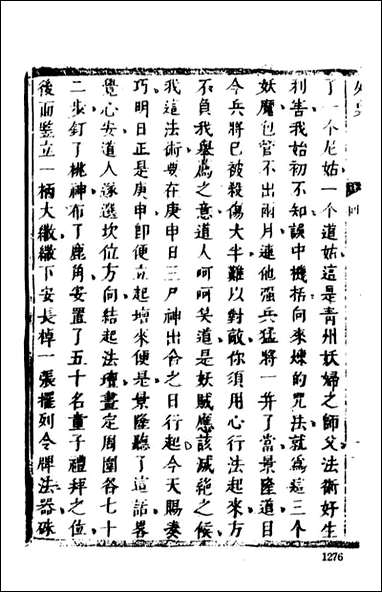 外史
四
了一个尼姑一个道姑這是青州妖婦之師父法術好生
利害我始初不知誤中機括向來煉的咒法就為這三个
妖魔包管不出兩月連他强兵猛將一齊了當景隆道目
今兵將已被殺傷大半難以對敵你須用心行法起來方
不負我舉薦之意道人呵呵笑道是妖賊應該滅絶之候
我這法術要在庚申日三尸神出舍之日行起今天賜湊
巧明日正是庚申即便立起壇來便是景隆聽了這話畧
覺心安道人遂選坎位方向結起法壇畫定周圍各七十
二步釘了桃神布了鹿角安置了五十名童子禮拜之位
後面豎立一柄大繖繖下安長棹一張擺列令牌法器硃
1276